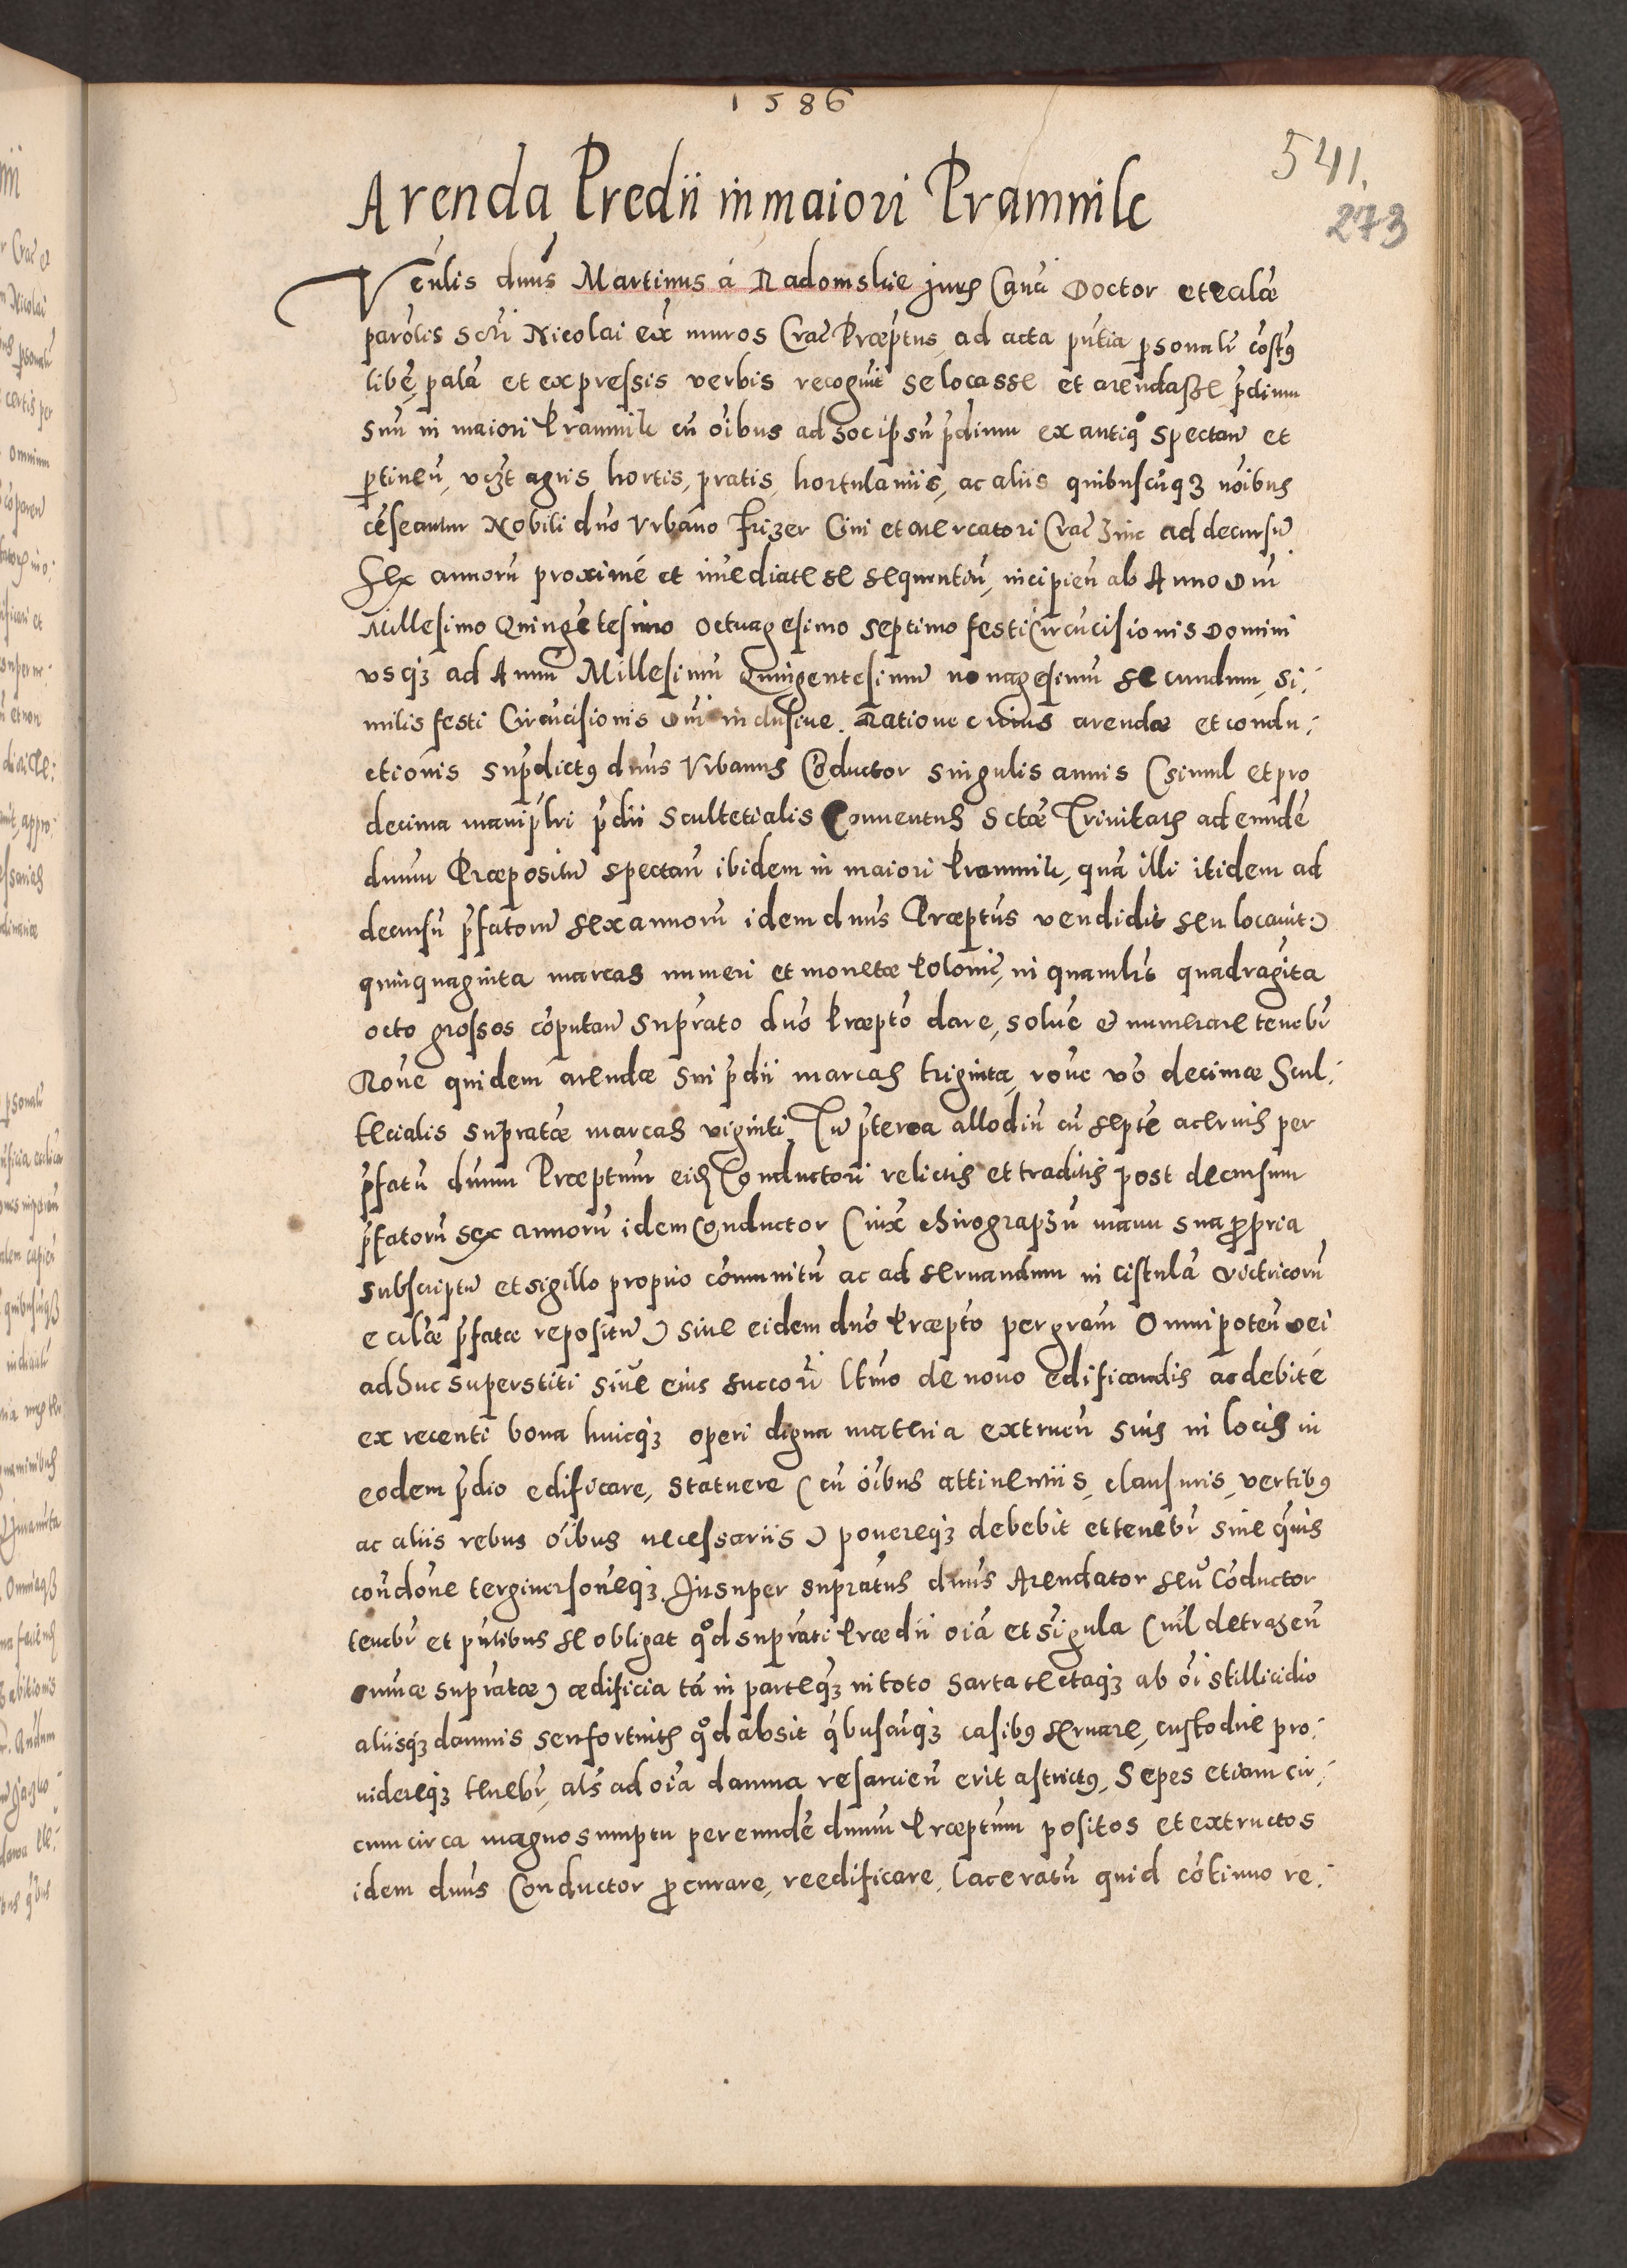 1586
541.
273
Arenda Predii in maiori Pramnik
Veńlis dnūs Martinus á Radomskie Juris Canā Doctor et ecclāe
parōlis sctī Nicolai ex muros Crac Præptus, ad acta pūtia psonalr cōstꝰ
libē, palā et expressis verbis recognit se locasse et arendasse pdium
suū in maiori Pramnik cū oībus ad hoc ipsū pdium ex antiqº spectan̄ et
ptinen̄, vcꝫt agris hortis, pratis, hortulaniis, ac aliis quibuscūqꝫ noībus
cēseantur Nobili dnō Vrbano Frizer Cini et mercatori Crac hinc ad decursū
sex annorū proximé et imediate se sequentiū, incipien̄ ab Anno Dni
Millesimo Quingētesimo octuagesimo septimo festi Circūcisionis Domini
vsqꝫ ad Annū Millesimū Quingentesimum nonagesimū secundum, si,
milis festi Circūcisionis Dni inclusiue. Ratione cuius arendæ et condu,
ctionis supdictꝰ dnus Vrbanus Cōductor singulis annis (simul et pro
decima manipłri pdii scultetialis Conuentus Sctæ Trinitatis ad eundē
dnum Præpositū spectan̄ ibidem in maiori Pramnik, quā illi itidem ad
decursū pfatorū sex annorū idem dnus Præptus vendidit seu locauit)
quinquaginta marcas numeri et monetæ Polonic̄, in quamlēt quadragīta
octo grossos cōputan̄ supräto dnō Præptō dare, soluē et numerare tenebr
Rōne quidem arendæ sui pdii marcas triginta, rōne vō decimæ Scul,
tecialis suprätæ marcas viginti. Tū pterea allodiū cū septē aceruis per
pfatū dnum Præptum eid Conductori relictis et traditis post decursum
pfatorū sex annorū idem Conductor (iux chirographū manu sua propria
subscriptū et sigillo proprio cōmunitū ac ad seruandum in cistulā victricorū
ecclāe pfatæ repositū) siue eidem dnō Præptō per gram Omnipoten̄ Dei
adhuc superstiti siue eius succorī ltīmo de nouo edificandis ac debité
ex recenti bona huicqꝫ operi digna materia extruen̄ suis in locis in
eodem pdio edificare, statuere (cū oībus attinentiis, clausuris, vertibꝰ
ac aliis rebus oībus necessariis) ponereqꝫ debebit et tenebr sine q̄uis
conden̄e terginersoneqꝫ. Insuper suprätus dnus Arendator seu Cōductor
tenebr et pūtibus se obligat qºd supräti Prædii oiā et sīgula (nil detrahen̄
numæ suprätæ) ædificia tā in parteqꝫ in toto sarta tectaqꝫ ab oī stillicidio
aliisqꝫ damnis seu fortuitis qºd absit qbuscūqꝫ casibꝰ seruare, custodire pro,
uidereqꝫ tenebr, als ad oiā damna resarcien̄ erit astrictꝰ, Sepes etiam cir,
cumcirca magno sumptu per eundē dnum Præptum positos et extructos
idem dnus Conductor procurare, reedificare, laceratū quid cōtinuo re,